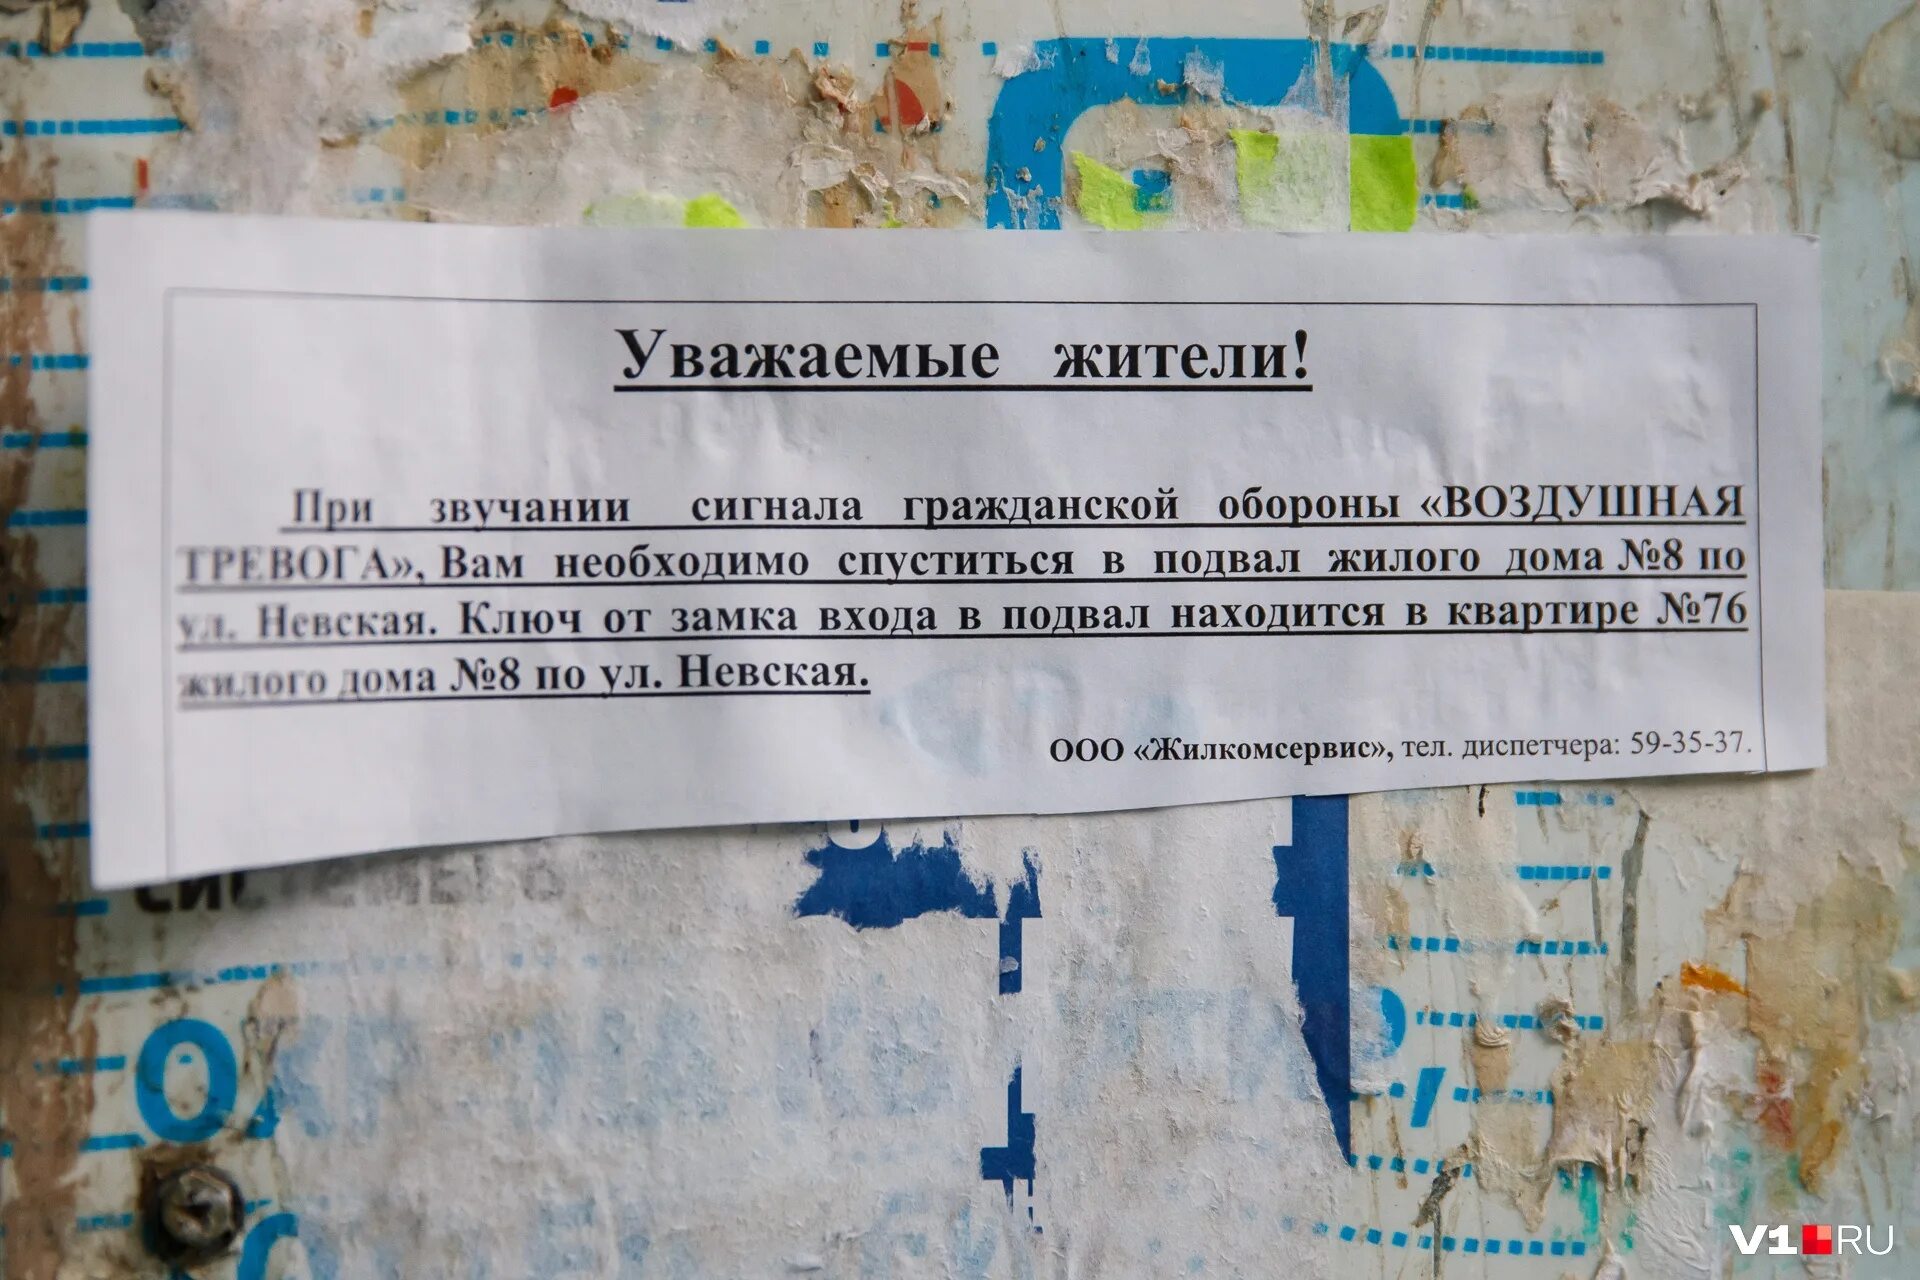 Уважаемые жители!
При звучании сигнала гражданской обороны «ВОЗДУШНАЯ
ТРЕВОГА», Вам необходимо спуститься в подвал жилого дома №8 по
ул. Невская. Ключ от замка входа в подвал находится в квартире №76
жилого дома №8 по ул. Невская.
ООО «Жилкомсервис», тел. диспетчера: 59-35-37.
V1 RU